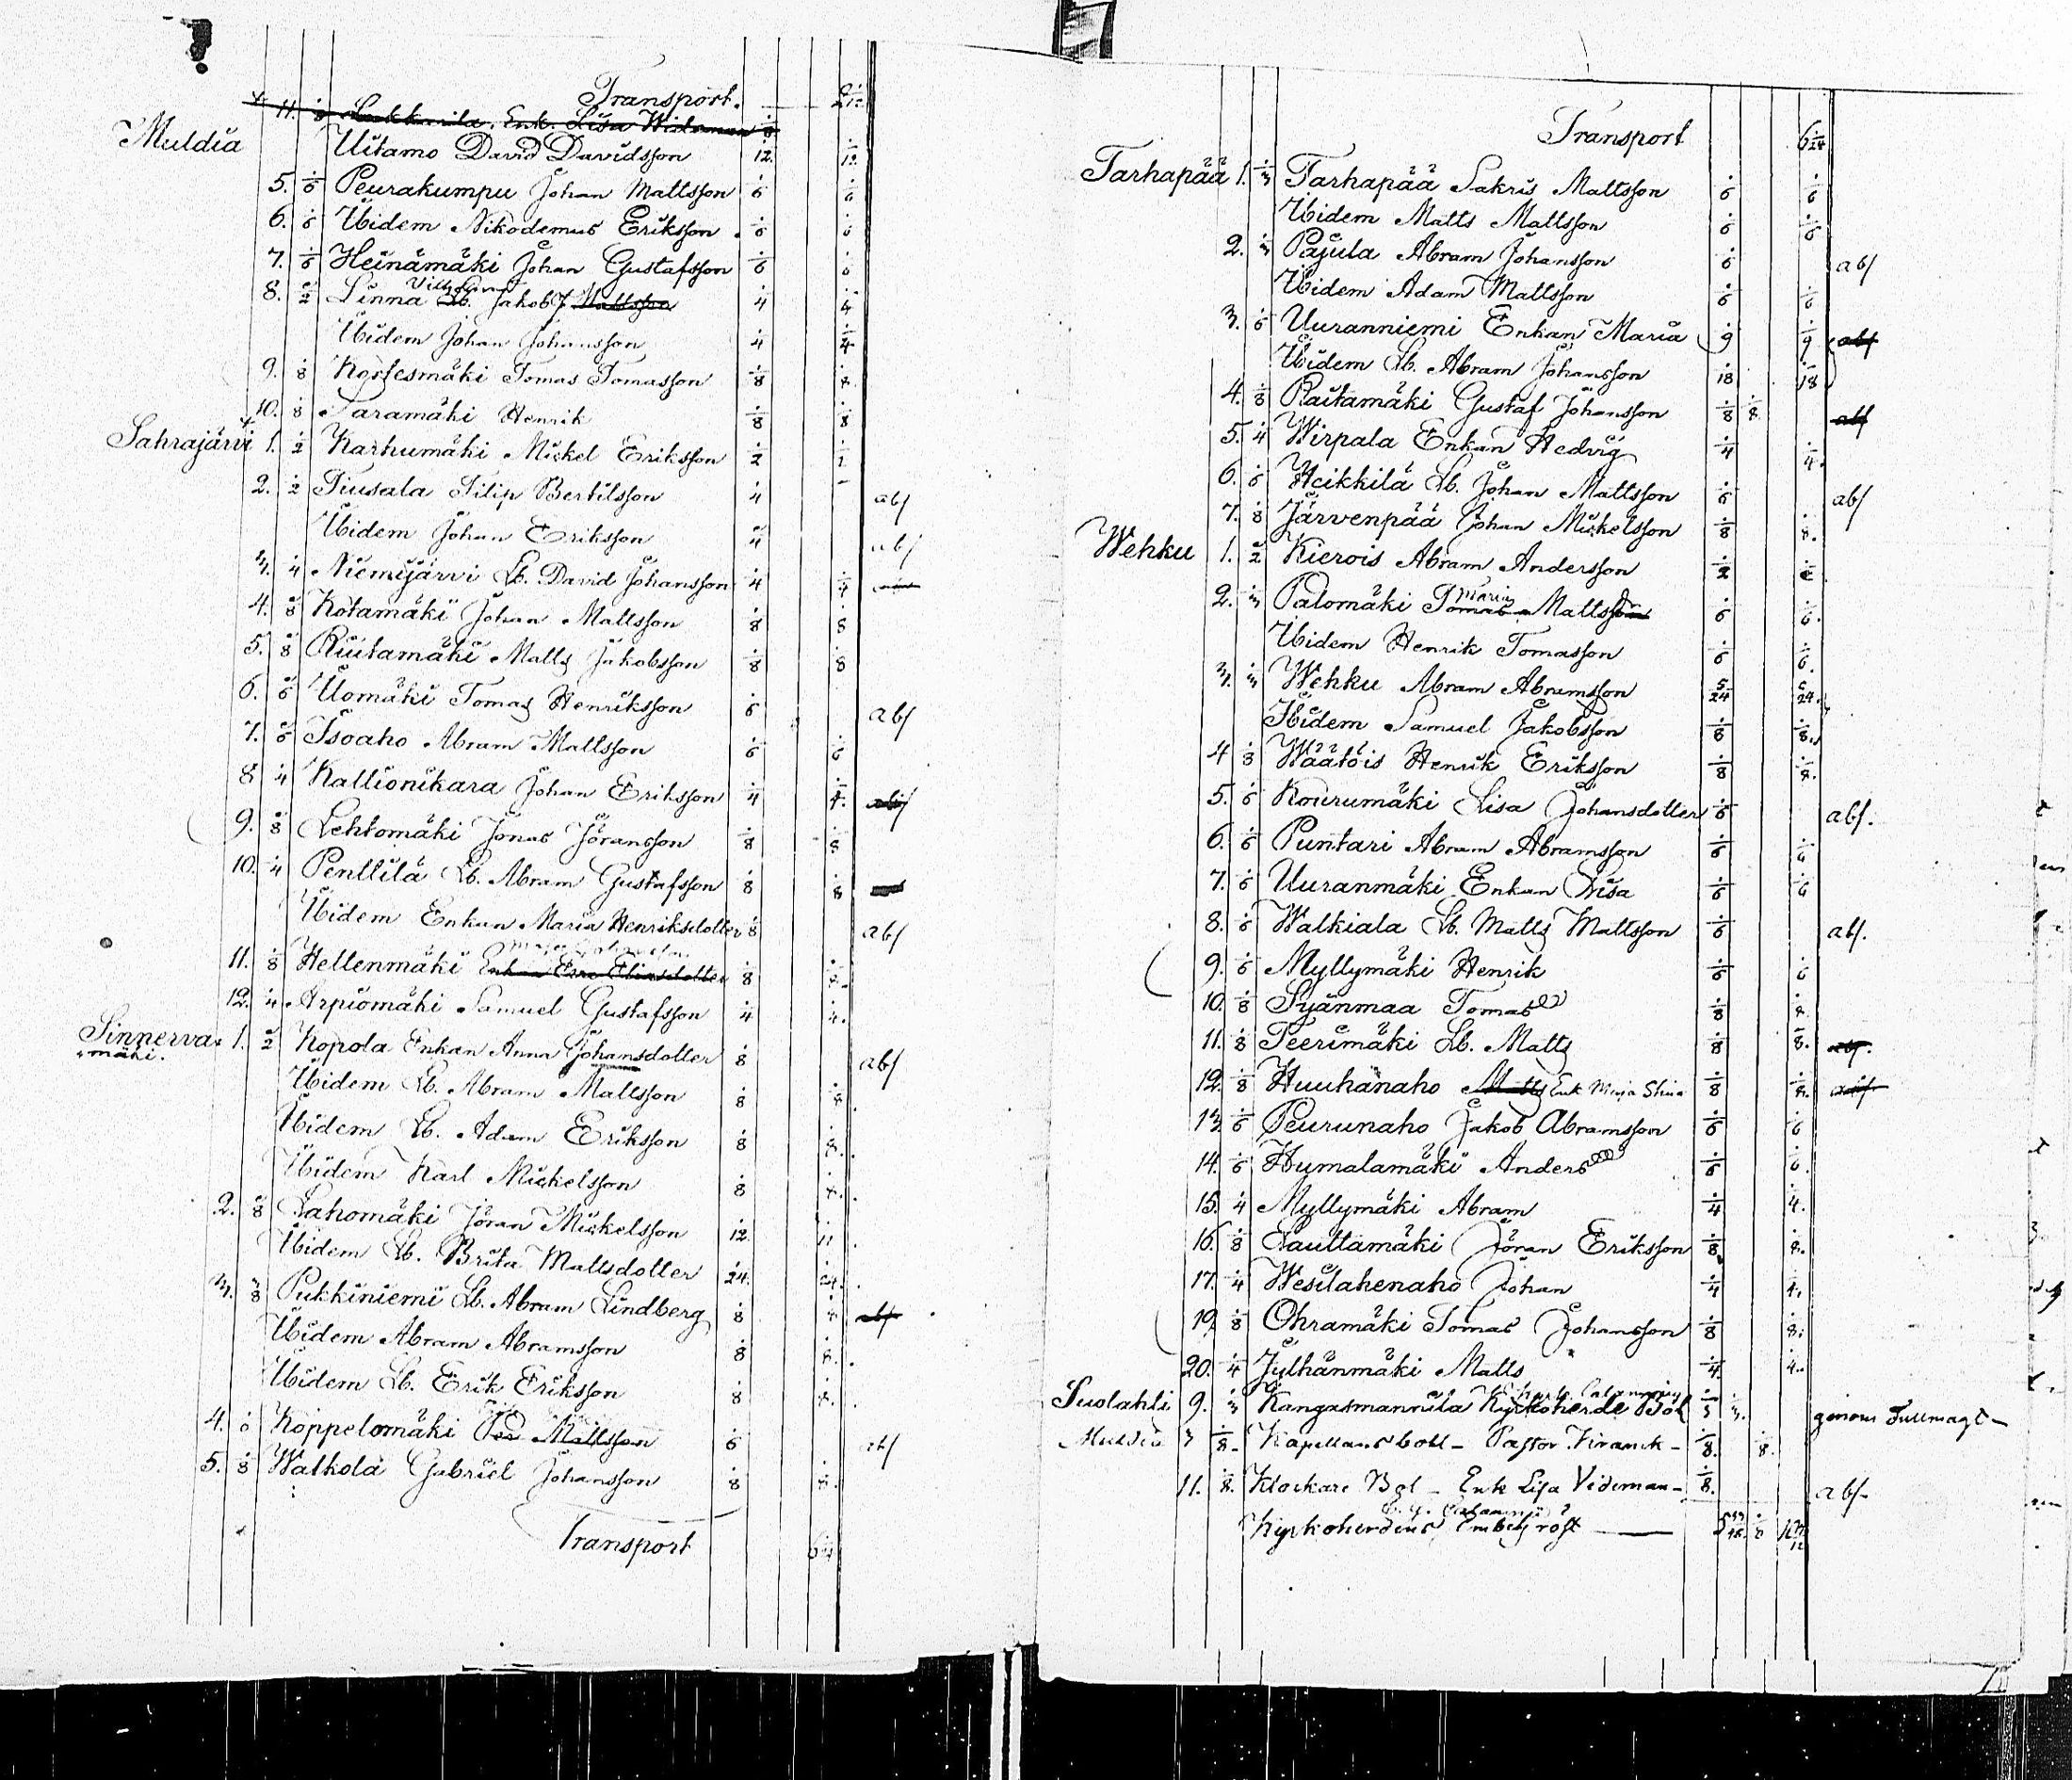 Transport.
11. Enk. Lisa Wideman
Muldia Uitamo David Davidsson 1/12. 1/12.
5. 1/6 Peurakumpu Johan Mattsson 1/6 1/6
6. 1/6 Ibidem Nikodemus Eriksson 1/6 1/6
7. 1/6 Heinämäki Johan Gustafsson 1/6 1/6
8. 1/2 Linna Lb. Jakob Mattsson 1/4 1/4
Ibidem Johan Johansson 1/4 1/4
9. 1/8 Korfesmäki Tomas Tomasson 1/8 1/8
10. 1/8 Saramäki Henrik 1/8 1/8
Sahrajärvi 1. 1/2 Karhumäki Mickel Eriksson 1/2 1/2
2. 1/2 Tiusala Filip Bertilsson 1/4 abs
Ibidem Johan Eriksson 1/4 abs
3. 1/4 Niemijärvi Lb. David Johansson 1/4 1/4
4. 1/8 Kotamäki Johan Mattsson 1/8 1/8
5. 1/8 Riutamäki Matts Jakobsson 1/8 1/8
6. 1/6 Uomäki Tomas Henriksson 1/6 abs
7. 1/6 Isoaho Abram Mattsson 1/6 1/6
8 1/4 Kallionikara Johan Eriksson 1/4 1/4. abs
9. 1/8 Lehtomäki Jonas Jöransson 1/8 1/8
10. 1/4 Penttilä Lb. Abram Gustafsson 1/8 1/8
Ibidem Enkan Maria Henriksdotter 1/8 abs
11. 1/8 Hellenmäki Enkan Eva Eliasdotter 1/8 1/8.
12. 1/4 Arpiomäki Samuel Gustafsson 1/4 1/4.
Sinnervä- 1. 1/2 Kopola Enkan Anna Johansdotter 1/8 abs
mäki.
Ibidem Lb. Abram Mattsson 1/8 1/8.
Ibidem Lb. Adam Eriksson 1/8 1/8.
Ibidem Karl Mickelsson 1/8 1/8.
2. 1/8 Lahomäki Jöran Mickelsson 1/12. 1/12.
Ibidem Lb. Brita Mattsdotter 1/24. 1/24.
3. 3/8 Pukkiniemi Lb. Abram Lindberg 1/8 1/8 abs
Ibidem Abram Abramsson 1/8 1/8.
Ibidem Lb. Erik Eriksson 1/8 1/8.
4. 1/6 Koppelomäki Mattsson 1/6 abs
5. 1/8 Walkola Gabriel Johansson 1/8 1/8.
Transport
Transport
Tarhapää 1. 1/3 Tarhapää Sakris Mattsson 1/6 1/6
Ibidem Matts Mattsson 1/6 1/6
2. 1/3 Pajula Abram Johansson 1/6 abs
Ibidem Adam Mattsson 1/6 1/6
3. 1/6 Uuranniemi Enkan Maria 1/9 1/9 abs
Ibidem Lb. Abram Johansson 1/18 1/18
4. 1/8 Raitamäki Gustaf Johansson 1/8 1/8. abs
5. 1/4 Wirpala Enkan Hedvig 1/4 1/4.
6. 1/6 Heikkilä Lb. Johan Mattsson 1/6 abs
7. 1/8 Järvenpää Johan Mickelsson 1/8 1/8.
Wehku 1. 1/2 Kierois Abram Andersson 1/2 1/2
2. 1/3 Palomäki Maria Tomas Mattsson 1/6 1/6.
Ibidem Henrik Tomasson 1/6 1/6.
3. 1/3 Wehku Abram Abramsson 5/24 5/24.
Ibidem Samuel Jakobsson 1/8 1/8.
4 1/8 Wäätöis Henrik Eriksson 1/8 1/8.
5. 1/6 Kourumäki Lisa Johansdotter 1/6 abs.
6. 1/6 Puntari Abram Abramsson 1/6 1/6
7. 1/6 Uuranmäki Enkan Lisa 1/6 1/6
8. 1/6 Walkiala Lb. Matts Mattsson 1/6 abs.
9. 1/6 Myllymäki Henrik 1/6 1/6
10. 1/8 Syänmaa Tomas 1/8 1/8.
11. 1/8 Teerimäki Lb. Matts 1/8 1/8. abs.
12. 1/8 Huuhanaho Matts Enk Maja Stina 1/8 1/8.
13 1/6 Peurunaho Jakob Abramsson 1/6 1/6
14. 1/6 Humalamäki Anders 1/6 1/6.
15. 1/4 Myllymäki Abram 1/4 1/4.
16. 1/8 Lauttamäki Jöran Eriksson 1/8 1/8.
17. 1/4 Wesilahenaho Johan 1/4 1/4.
19. 1/8 Ohramäki Tomas Johansson 1/8 1/8.
20. 1/4 Julhänmäki Matts 1/4 1/4.
Suolahti 9. 1/3 Kangasmannila Kyrkoherde 1/3 1/3. genom Fullmagt
Muldia 3 1/8 Kapellans boll - Pastor Kranck - 1/8. 1/8.
11. 1/8. Klockare Bol - Enk Lisa Videman - 1/8. abs.
Kyrkoherdens Embets röst